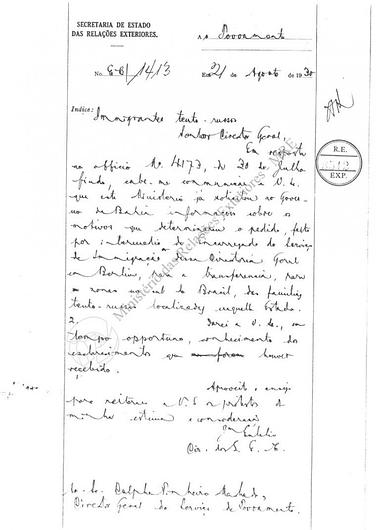 SECRETARIA DE ESTADO
DAS RELAÇÕES EXTERIORES.
Povoamento
No. 1413
Em 21 de Agosto de 1930
Indice:
Immigrantes teuto-russos
Senhor Director Geral,
Em resposta
ao officio No. 4173, de 30 de Julho
findo, cabe-me communicar a V. S.
que este Ministerio já solicitou ao Gover-
no da Bahia informações sobre os
motivos que determinaram o pedido, feito
por intermedio do Encarregado do Serviço
de Immigração dessa Directoria Geral
em Berlim, a transferencia, para
zonas no sul do Brasil, das familias
teuto-russas localizadas naquelle Estado.
2. Darei a V. S., em
tempo opportuno, conhecimento dos
esclarecimentos que houver
recebido.
Aproveito o ensejo
para reiterar a V. S. os protestos de
minha estima e consideração
Ao Sr. Dulphe Pinheiro Machado,
Director Geral do Serviço de Povoamento.
R.E.
EXP.
Ministério das Relações Exteriores - MRE